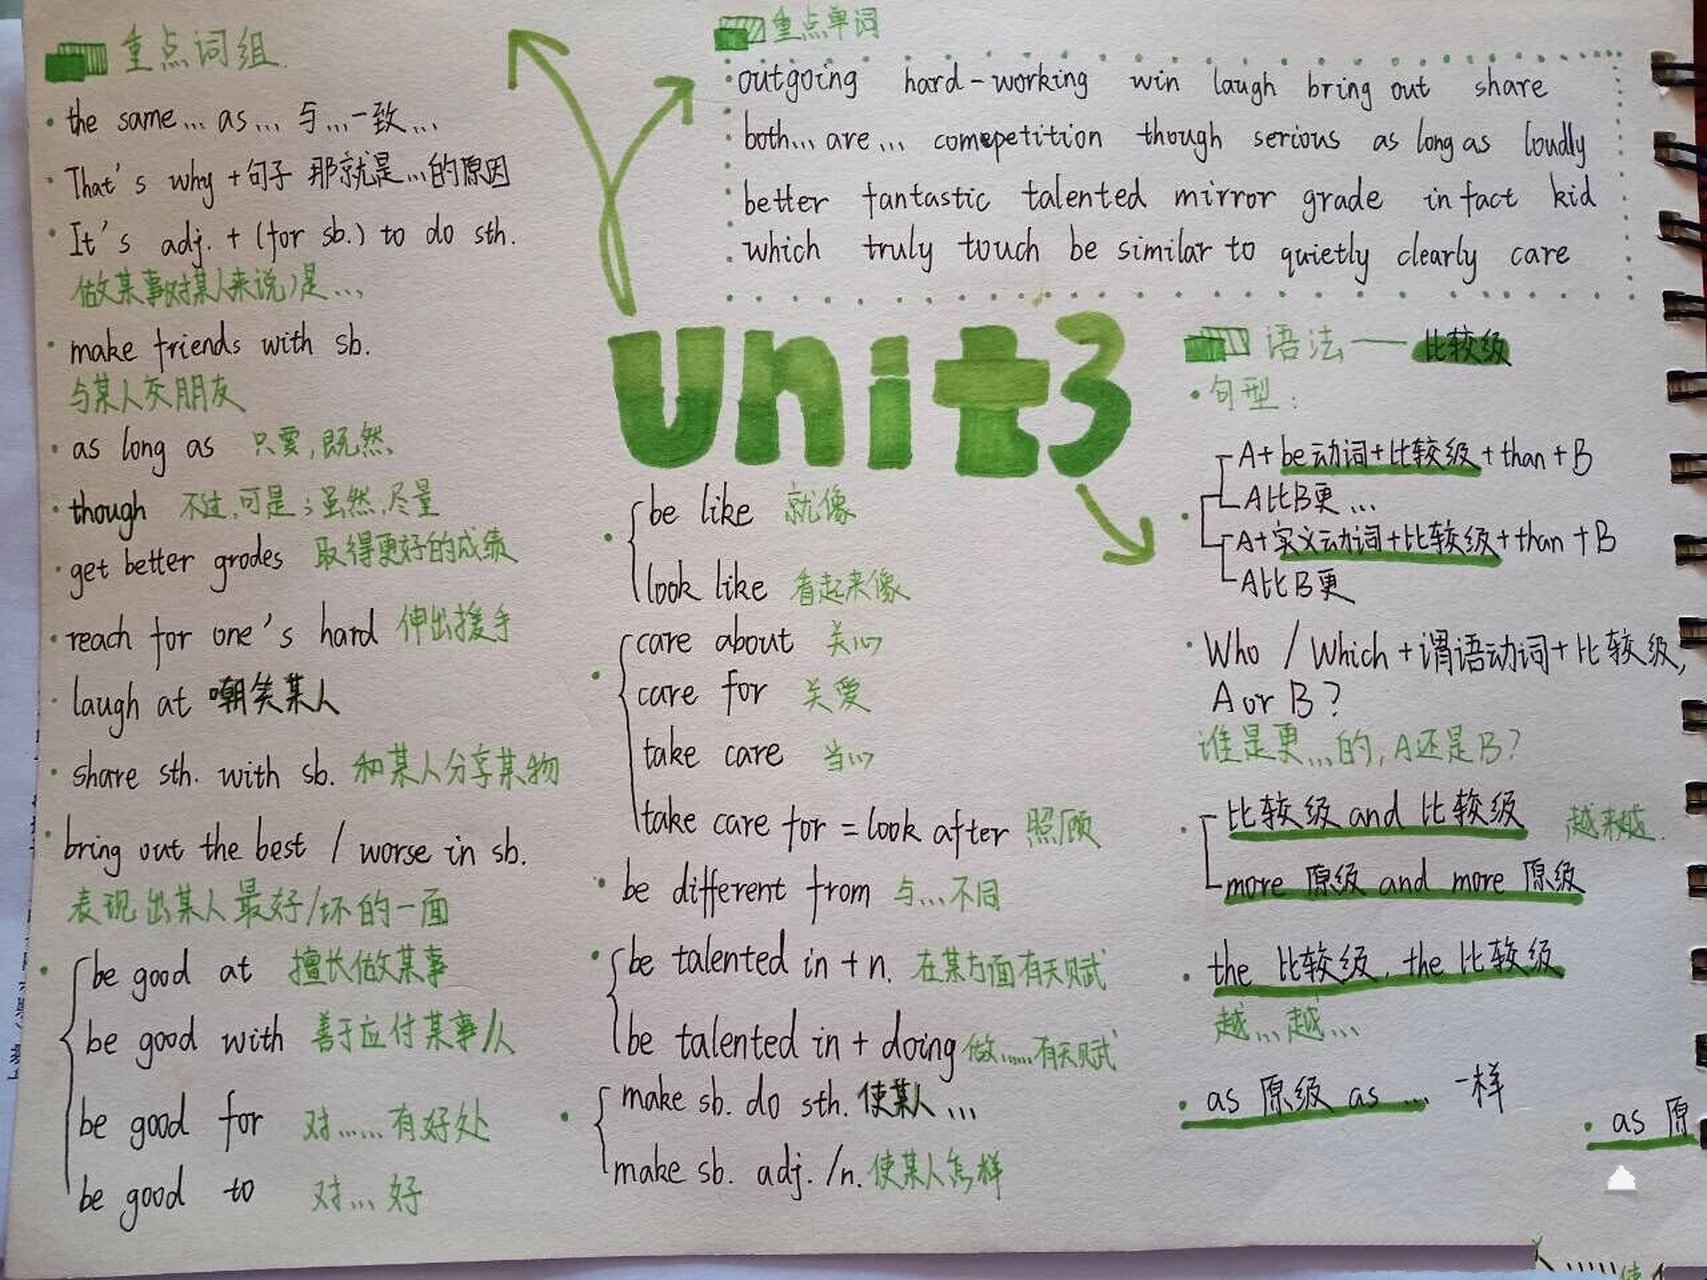 重点词组.
the same... as... 与...一致...
That's why +句子 那就是...的原因
It's adj. + (for sb.) to do sth.
做某事(对某人来说)是...
make friends with sb.
与某人交朋友
as long as 只要,既然
though 不过,可是;虽然,尽量
get better grodes 取得更好的成绩
reach for one's hard 伸出援手
laugh at 嘲笑某人
share sth. with sb. 和某人分享某物
bring out the best / worse in sb.
表现出某人最好/坏的一面
be good at 擅长做某事
be good with 善于应付某事/人
be good for 对......有好处
be good to 对...好
重点单词
outgoing hard-working win laugh bring out share
both... are... comepetition though serious as long as loudly
better fantastic talented mirror grade in fact kid
which truly touch be similar to quietly clearly care
unit3
be like 就像
look like 看起来像
care about 关心
care for 关爱
take care 当心
take care for = look after 照顾
be different from 与...不同
be talented in + n. 在某方面有天赋
be talented in + doing 做......有天赋
make sb. do sth. 使某人...
make sb. adj. /n. 使某人怎样
语法——比较级
句型:
A+be动词+比较级+than+B
A比B更...
A+实义动词+比较级+than+B
A比B更
Who / Which+谓语动词+比较级,
A or B?
谁是更...的,A还是B?
比较级 and 比较级 越来越.
more 原级 and more 原级
the 比较级, the 比较级
越...越...
as 原级 as ... 一样
as 原